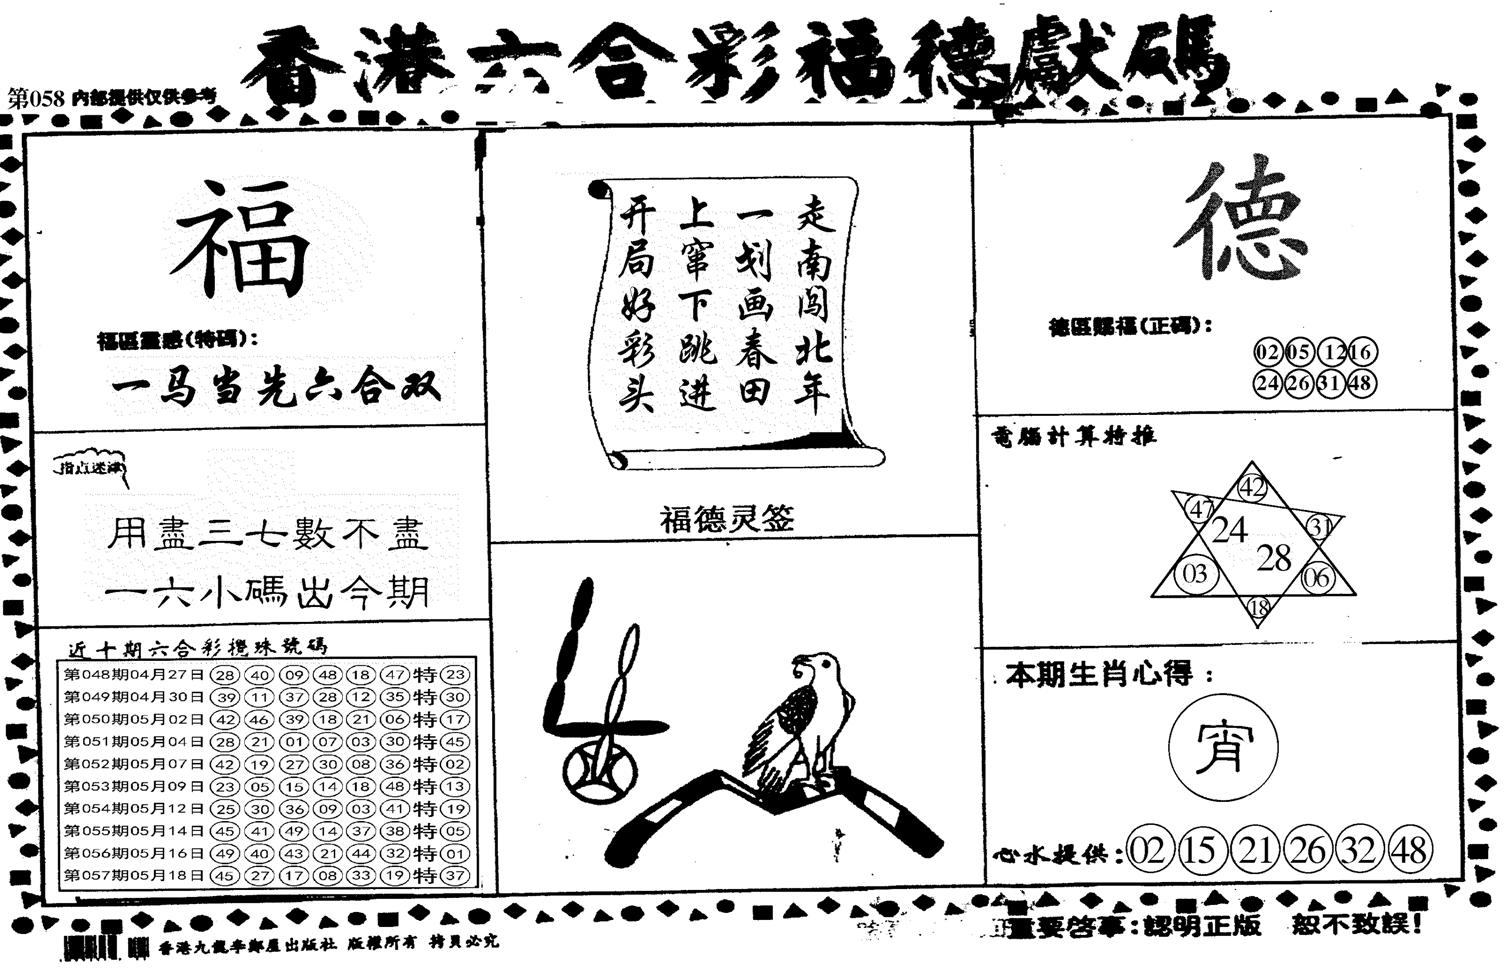 香港六合彩福德獻碼
第058 內部提供仅供参考
福
福區靈感(特碼):
一马当先六合双
指点迷津
用盡三七數不盡
一六小碼出今期
近十期六合彩攪珠號碼
第048期04月27日 28 40 09 48 18 47 特 23
第049期04月30日 39 11 37 28 12 35 特 30
第050期05月02日 42 46 39 18 21 06 特 17
第051期05月04日 28 21 01 07 03 30 特 45
第052期05月07日 42 19 27 30 08 36 特 02
第053期05月09日 23 05 15 14 18 48 特 13
第054期05月12日 25 30 36 09 03 41 特 19
第055期05月14日 45 41 49 14 37 38 特 05
第056期05月16日 49 40 43 21 44 32 特 01
第057期05月18日 45 27 17 08 33 19 特 37
走南闯北年
一划画春田
上窜下跳进
开局好彩头
福德灵签
德
德區賜福(正碼):
02 05 12 16
24 26 31 48
電腦計算特推
42
47
31
24
28
03
06
18
本期生肖心得:
宵
心水提供: 02 15 21 26 32 48
香港九龍李鄭屋出版社 版權所有 拷貝必究
重要啓事:認明正版 恕不致誤!